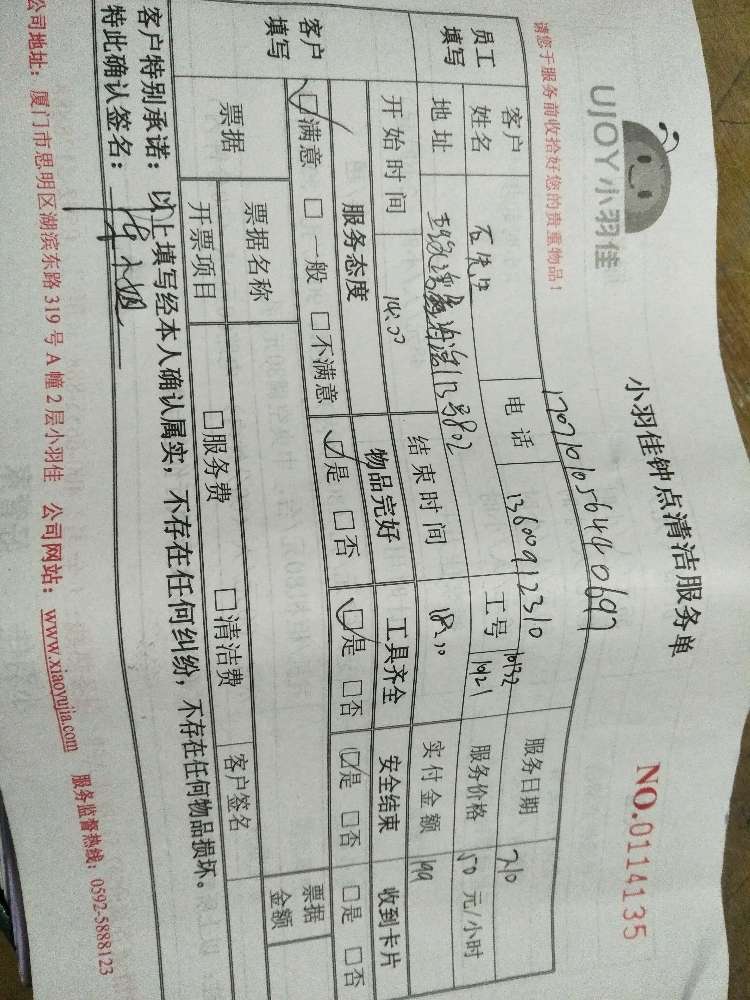 UJOY小羽佳
小羽佳钟点清洁服务单
NO.0114135
请您于服务前收拾好您的贵重物品！
员工填写
客户姓名
电话
13600912310
服务日期
7.10
地址
113号802
工号
服务价格
50 元/小时
开始时间
14:00
结束时间
18:00
实付金额
199
客户填写
服务态度
物品完好
工具齐全
安全结束
收到卡片
☑满意 □一般 □不满意
☑是 □否
☑是 □否
☑是 □否
□是 □否
票据
票据名称
票据金额
开票项目
□服务费 □清洁费
客户签名
客户特别承诺：以上填写经本人确认属实，不存在任何纠纷，不存在任何物品损坏。
特此确认签名：
公司地址：厦门市思明区湖滨东路 319 号 A 幢 2 层小羽佳 公司网站：www.xiaoyujia.com 服务监督热线：0592-5888123